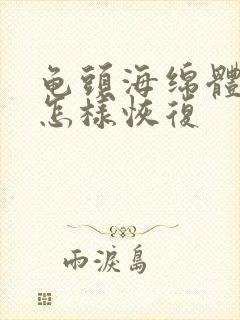 龟頭海绵體
怎樣恢復
雨淚島